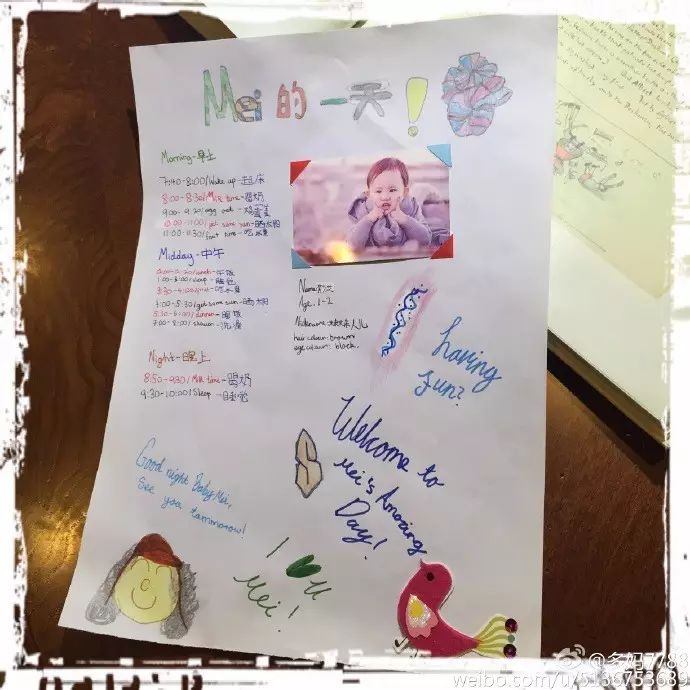 Mei 的一天!
Morning-早上
7:40-8:00/Wake up-起床
8:00-8:30/Milk time-喝奶
9:00-9:20/egg and-鸡蛋羹
10:00-11:00/get some sun-晒太阳
11:00-11:30/fruit time-吃水果
Midday-中午
-午饭
1:00-3:00/sleep-睡觉
3:30-4:00/fruit-吃水果
4:00-5:30/get some sun-晒太阳
5:30-6:00/dinner-晚饭
7:00-8:00/shower-洗澡
Night-晚上
8:50-9:30/Milk time-喝奶
9:30-10:00/Sleep-睡觉
Name:
Age: 1-2
Nickname:
hair colour: brown
eye colour: black.
having
fun?
Welcome to
Mei's Amazing
Day!
S
Good night Baby Mei,
See you tommorow!
I U
Mei!
@多妈7788
weibo.com/u/5136753689